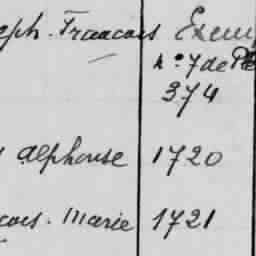 eph. Francois Exem
n° 7 de
374
Alphonse 1720
cois. Marie 1721